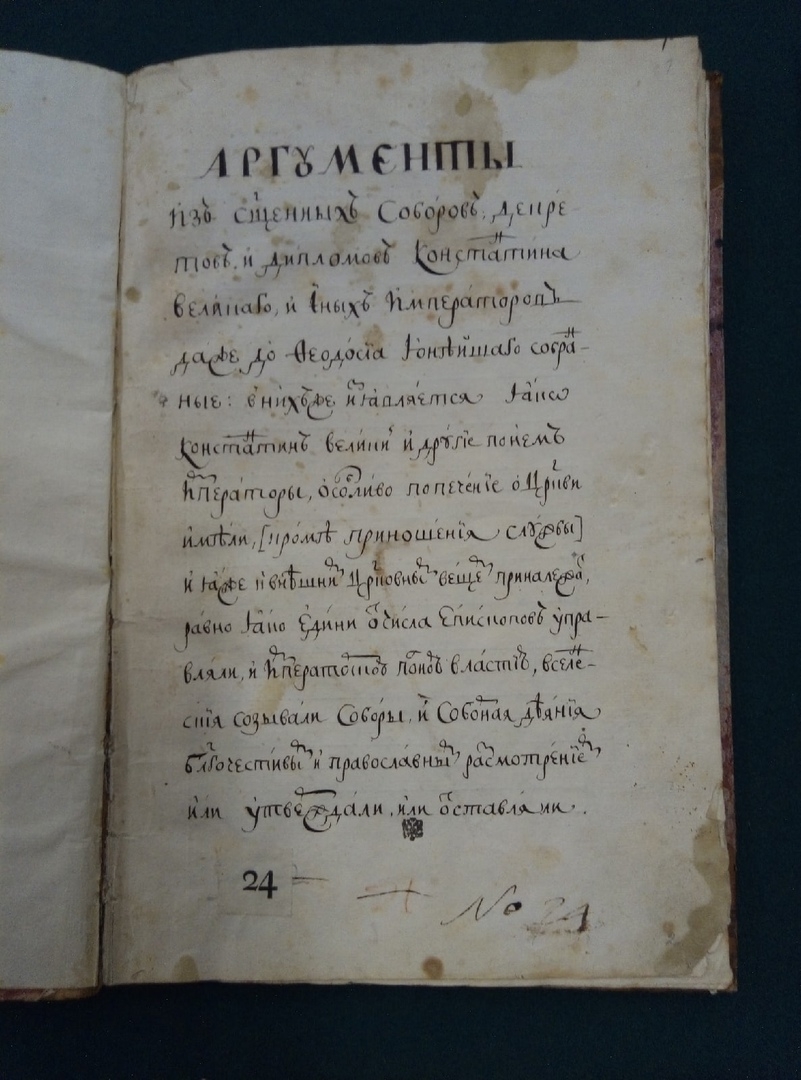 АРГУМЕНТЫ
Из̾ сщ҃енныхъ Соборовъ, декре
товъ, и дипломовъ Константина
великаго, и иныхъ Императоровъ
даже до Ѳеодосїа Юнѣйшаго собра-
ные: в нихъже изъявляется како
Константинъ великий и другїе по немъ
Императоры, особливо попеченїе о Цркви
имѣли, [кромѣ приношенїя службы]
и яже к внѣшним Црковным вещем приналежа,
равно яко едини от числа Епископовъ упра-
вляли, и Императоскою властїю, вселе-
скїя созывали Соборы, и Соборная дѣянїя
блгочестивым и православным расмотренїем
или утверждали, или оставляли.
24
No 24